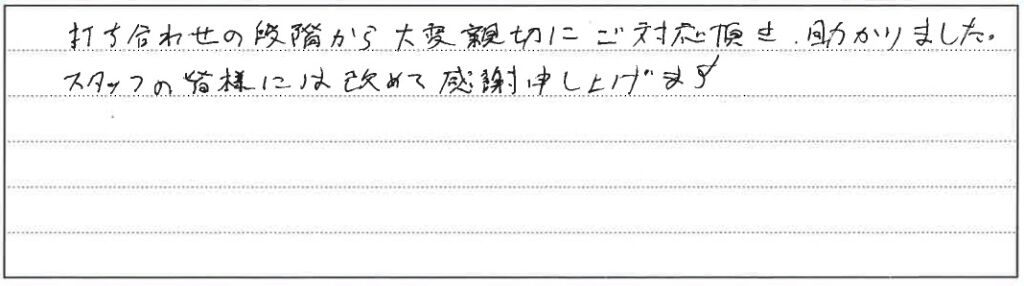 打ち合わせの段階から大変親切にご対応頂き、助かりました。
スタッフの皆様には改めて感謝申し上げます